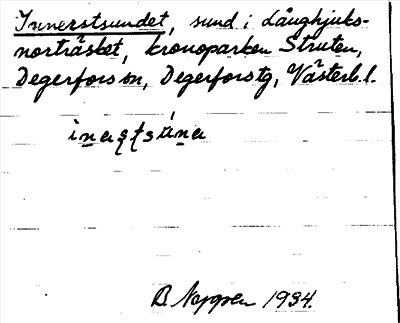 Innerstsundet, sund i Långhjuks-
norträsket, kronoparken Struten,
Degerfors sn, Degerfors tg, Västerb. l.
B. Noggren 1934.